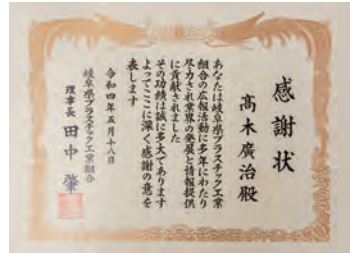 感謝状
髙木廣治殿
あなたは岐阜県プラスチック工業
組合の広報活動に多年にわたり
尽力され業界の発展と情報提供
に貢献されました
その功績は誠に多大であります
よってここに深く感謝の意を
表します
令和四年五月十八日
岐阜県プラスチック工業組合
理事長 田中 肇